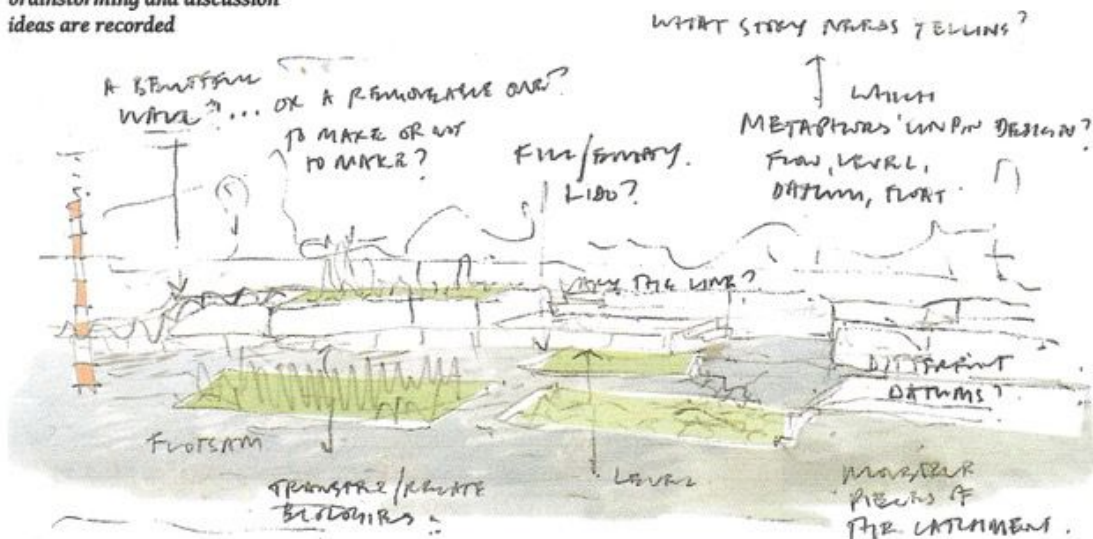 brainstorming and discussion
ideas are recorded
WHAT STORY NEEDS TELLING?
A BEAUTIFUL
WALL?... OR A REMOVEABLE ONE?
TO MAKE OR NOT
TO MAKE?
WHICH
METAPHORS UNPIN DESIGN?
FLOW, LEVEL,
DATUM, FLOAT
FILL/EMPTY.
LIDO?
THE LINE?
DIFFERENT
DATUMS?
FLOTSAM
LEVEL
TRANSFER/RELATE
ECOLOGIES
PIECES OF
THE CATCHMENT.